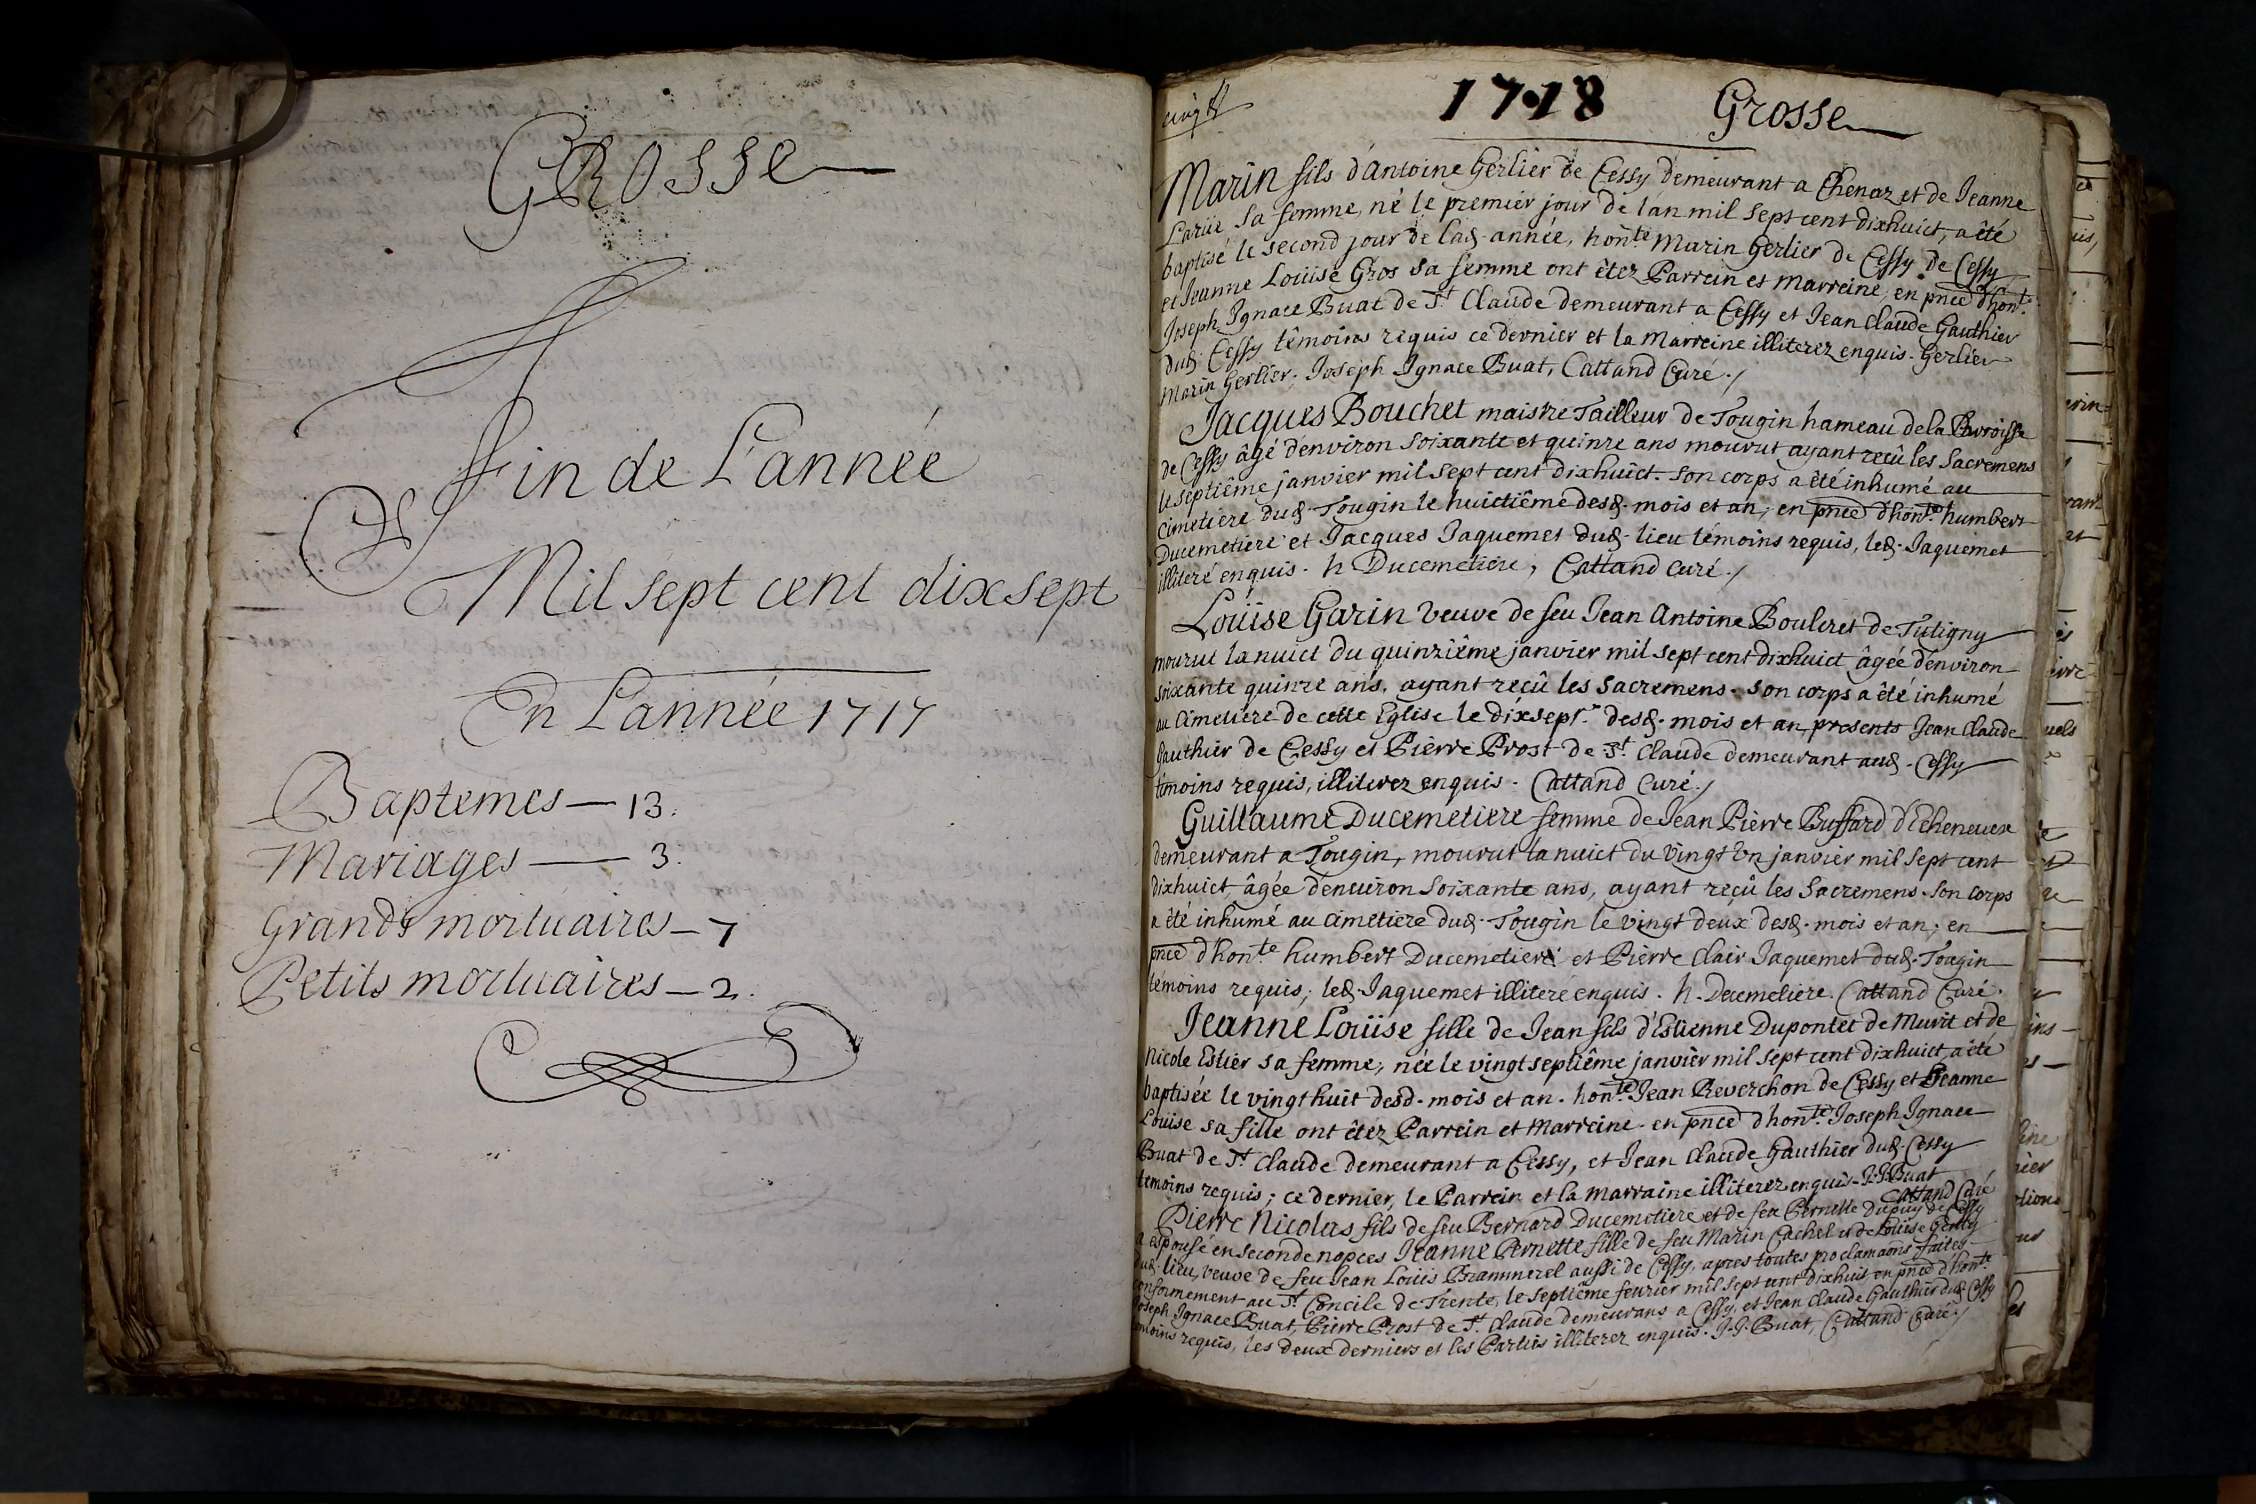 Grosse
Fin de L'année
Mil sept cent dixsept
En L'année 1717
Baptemes — 13.
Mariages — 3.
Grands mortuaires — 7
Petits mortuaires — 2.
1718 Grosse
Marin fils d'Antoine Gerlier de Cessy demeurant a Chenaz et de Jeanne
Larüe sa femme, né le premier jour de l'an mil sept cent dixhuict, a êté
baptisé le second jour de lad. année, hon.te Marin Gerlier de Cessy de Cessy
et Jeanne Louïse Gros sa femme ont êtez Parrein et Marreine, en pnce d'hon.te
Joseph Ignace Buat de St Claude demeurant a Cessy et Jean Claude Gauthier
dud. Cessy têmoins requis ce dernier et la Marreine illiterez enquis. Gerlier
Marin Gerlier, Joseph Ignace Buat, Cattand Curé./
Jacques Bouchet maistre Tailleur de Tougin hameau de la Parroisse
de Cessy âgé d'environ soixante et quinze ans mourut ayant reçû les Sacremens
le septiême janvier mil sept cent dixhuict. son corps a êté inhumé au
cimetiere dud. Tougin le huictiême desd. mois et an, en pnce d'hon.te humbert
Ducemetiere et Jacques Jaquemet dud. lieu têmoins requis, led. Jaquemet
illiteré enquis. h Ducemetiere, Cattand Curé./
Loüise Garin veuve de feu Jean Antoine Bouleret de Tutigny
mourut la nuict du quinziême janvier mil sept cent dixhuict âgée d'environ
soixante quinze ans, ayant reçû les Sacremens. son corps a êté inhumé
au cimetiere de cette Eglise le dixsept.e desd. mois et an, presents Jean Claude
Gauthier de Cessy et Pierre Prost de St Claude demeurant aud. Cessy
têmoins requis, illiterez enquis. Cattand Curé./
Guillaume Ducemetiere femme de Jean Pierre Buffard d'Echenevex
demeurant a Tougin, mourut la nuict du vingt un janvier mil sept cent
dixhuict, âgée d'environ soixante ans, ayant reçû les Sacremens. son corps
a êté inhumé au cimetiere dud. Tougin le vingt deux desd. mois et an, en
pnce d'hon.te humbert Ducemetiere et Pierre Clair Jaquemet dud. Tougin
têmoins requis, led. Jaquemet illiteré enquis. h. Ducemetiere. Cattand Curé.
Jeanne Loüise fille de Jean fils d'Estienne Dupontet de Murit et de
Nicole Estier sa femme, née le vingt septiême janvier mil sept cent dixhuict, a êté
baptisée le vingt huit desd. mois et an. hon.te Jean Reverchon de Cessy et Jeanne
Loüise sa fille ont êtez Parrein et Marreine. en pnce d'hon.te Joseph Ignace
Buat de St Claude demeurant a Cessy, et Jean Claude Gauthier dud. Cessy
temoins requis; ce dernier, le Parrein et la Marraine illiterez enquis. J. J. Buat
Cattand Curé
Pierre Nicolas fils de feu Bernard Ducemetiere et de feu Pernette Dupuy de Cessy
a espousé en seconde nopces Jeanne Pernette fille de feu Marin Cachet et de Loüise Genty
dud. lieu, veuve de feu Jean Loüis Brammerel aussi de Cessy, apres toutes proclamaons faites
conformement au St Concile de Trente, le septiême fevrier mil sept cent dixhuit en pnce d'hon.te
Joseph Ignace Buat, Pierre Prost de St Claude demeurans a Cessy, et Jean Claude Gauthier dud. Cessy
temoins requis, les deux derniers et les Parties illiterez enquis. J. J. Buat, Cattand Curé./